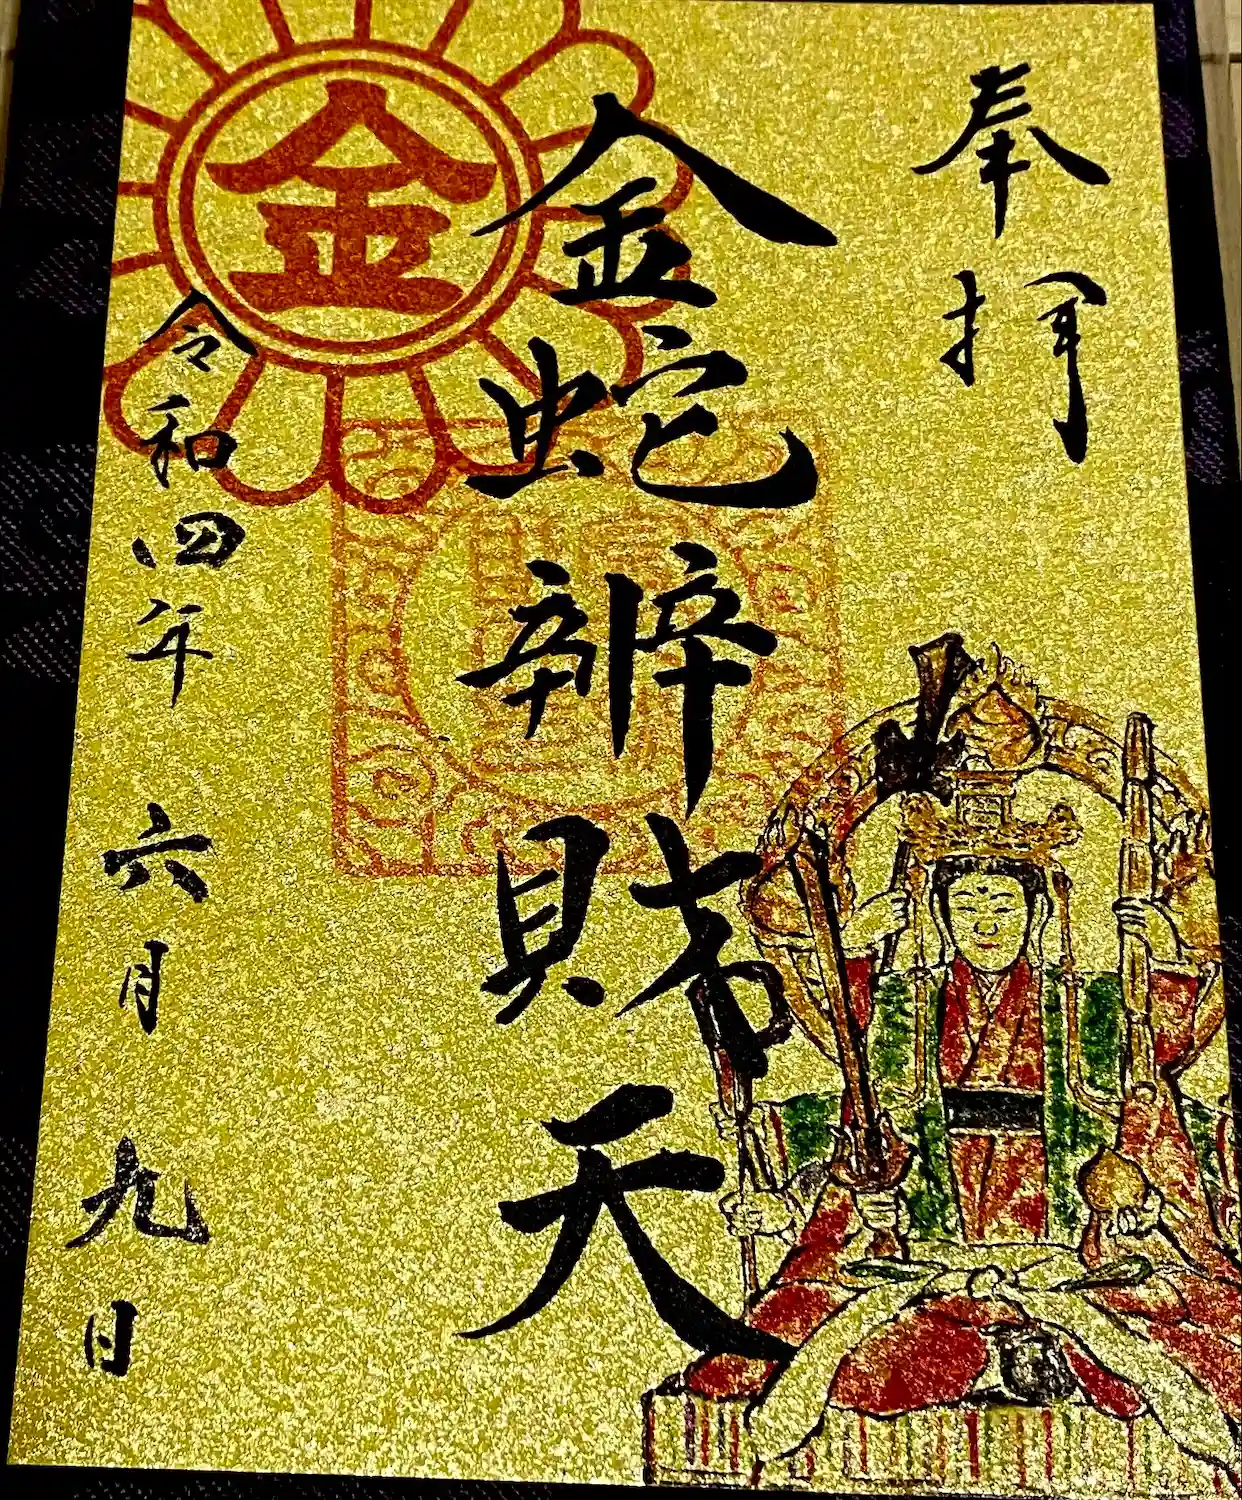 奉拝
金蛇辨財天
金
令和四年六月九日